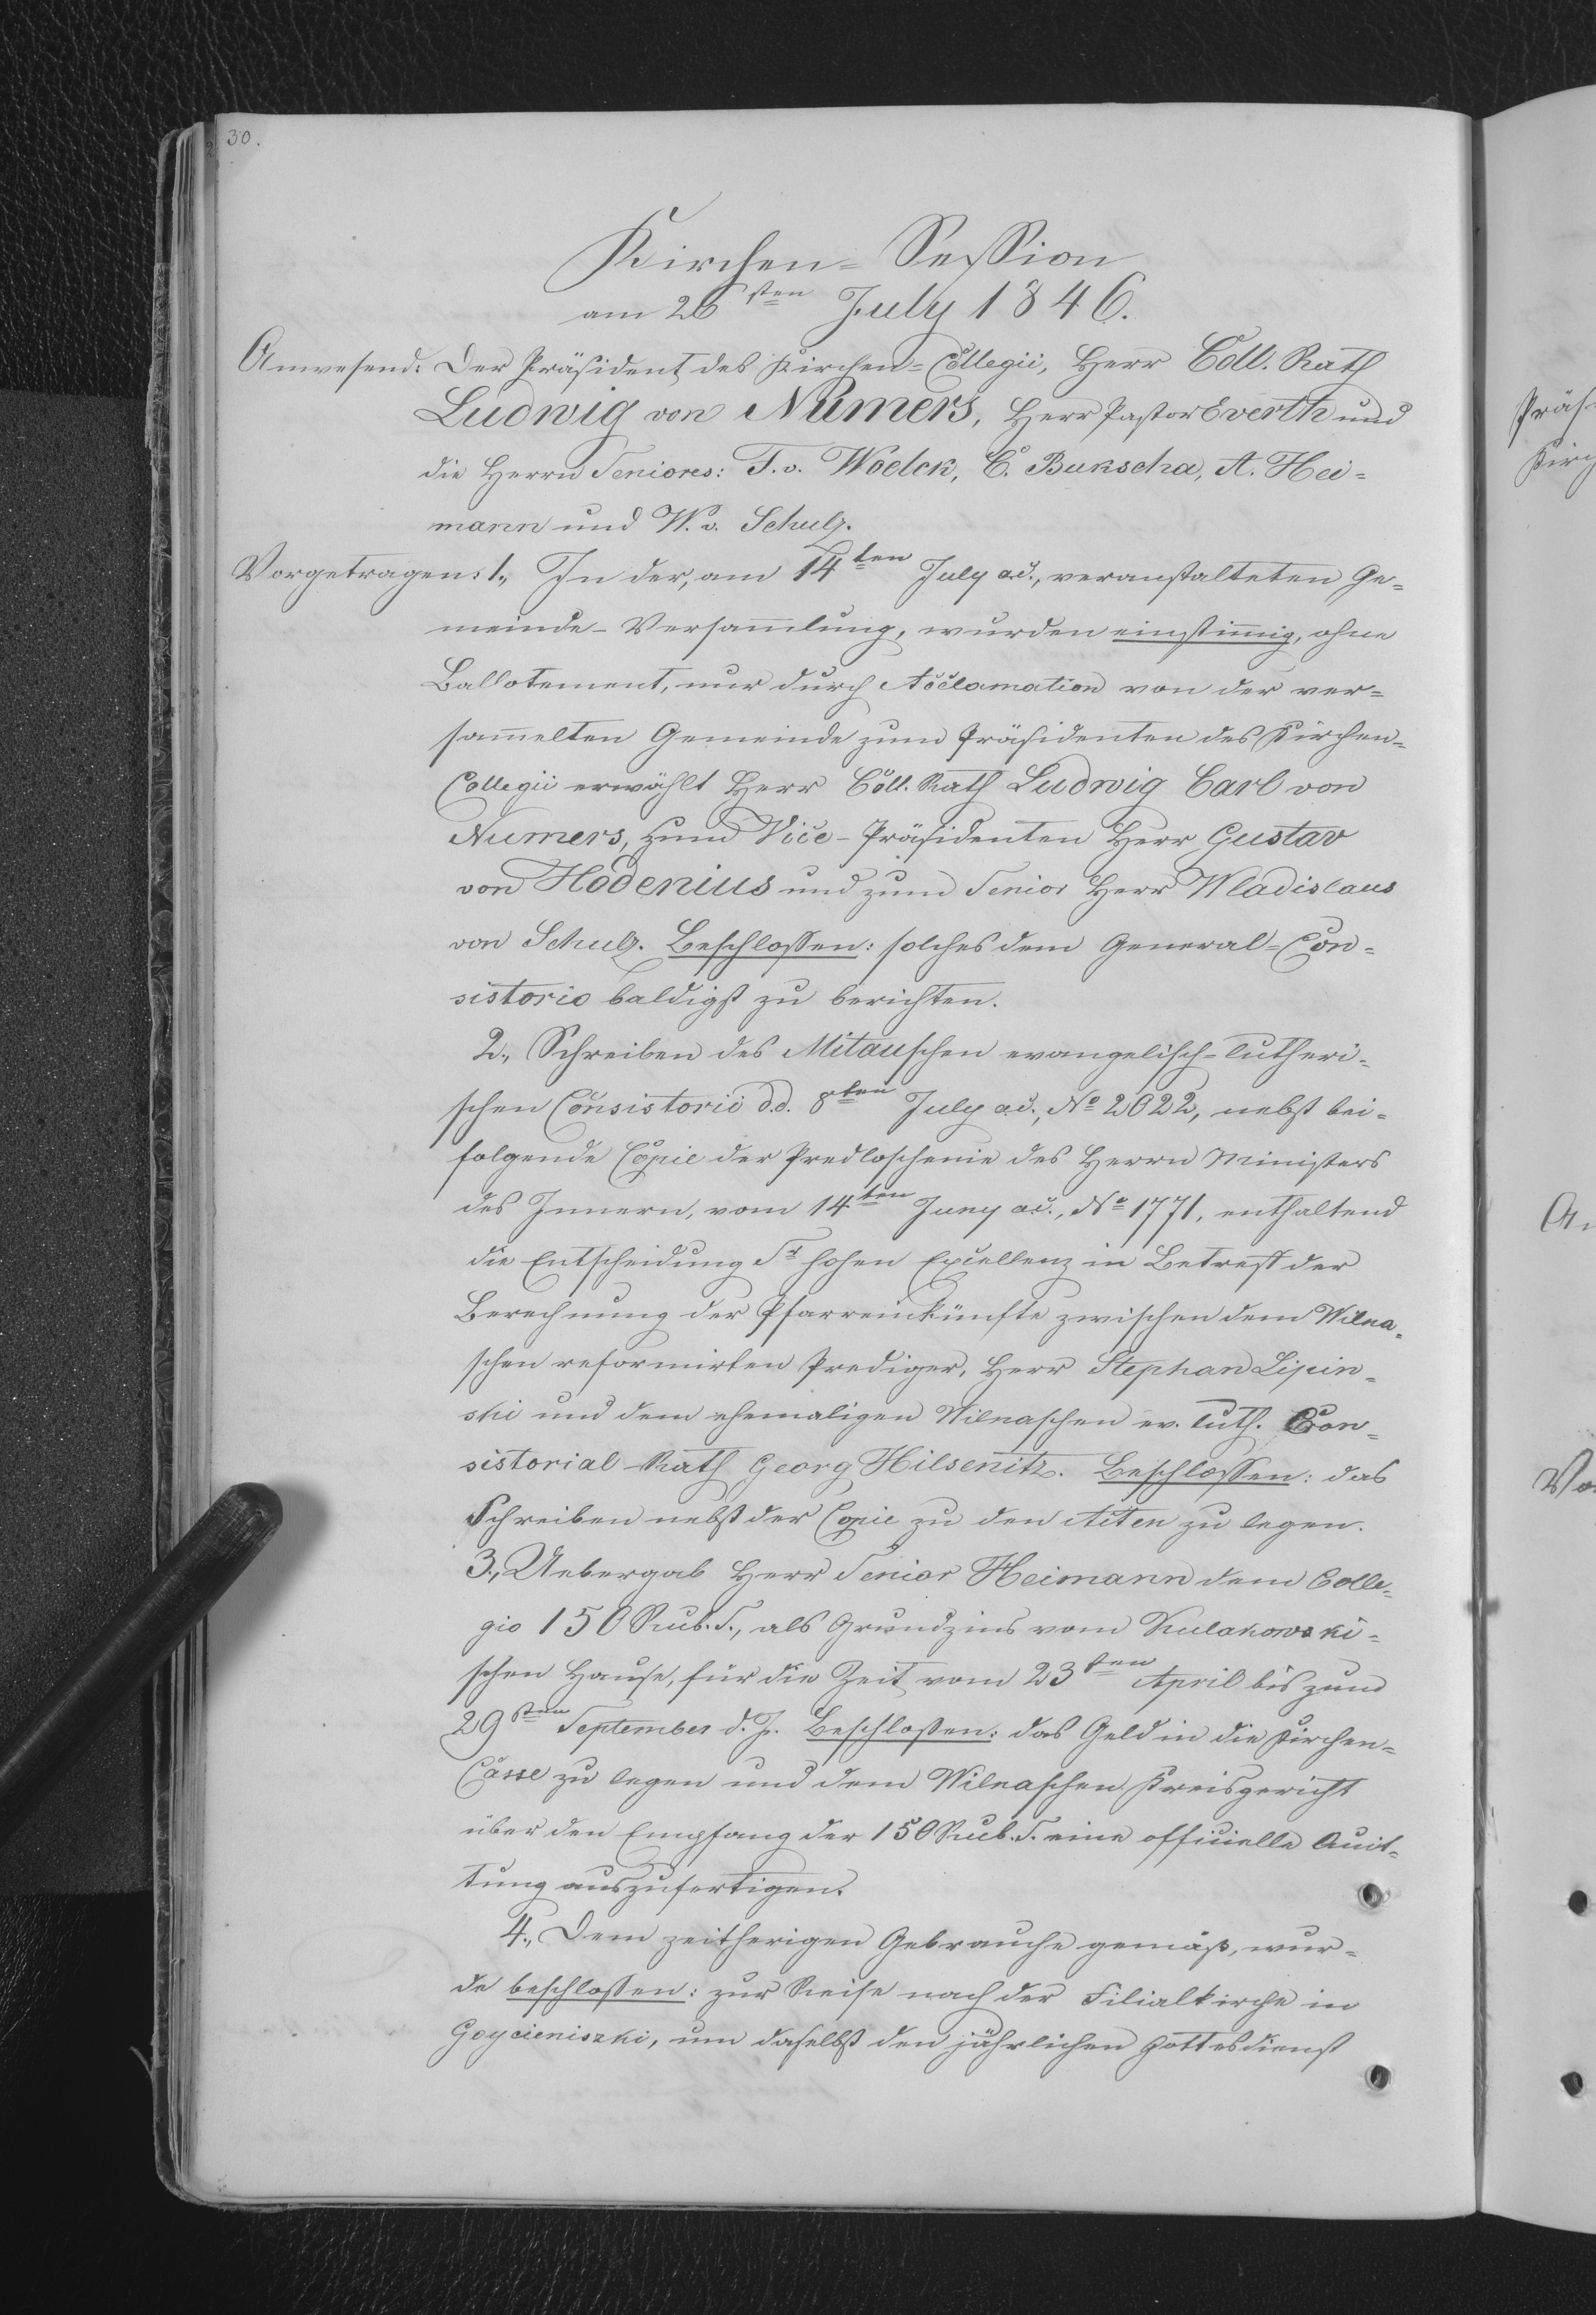 30.
Kirchen-Session
am 26sten July 1846.
Anwesend: Der Präsident des Kirchen-Collegii, Herr Coll. Rath
Ludwig von Numers, Herr Pastor Everth und
die Herrn Seniores: F. v. Woelck, C. Bukscha, A. Hei-
mann und W. v. Schulz.
Vorgetragen: 1., In der, am 14ten July a.c., veranstalteten Ge-
meinde-Versam̅lung, wurden einstim̅ig, ohne
Ballotement, nur durch Acclamation von der ver-
sam̅elten Gemeinde zum Präsidenten des Kirchen-
Collegii erwählt Herr Coll. Rath Ludwig Carl von
Numers, zum Vice-Präsidenten Herr Gustav
von Hodenius und zum Senior Herr Wladislaus
von Schulz. Beschlossen: solches dem General-Con-
sistorio baldigst zu berichten.
2., Schreiben des Mitauschen evangelisch-lutheri-
schen Consistorii d.d. 8ten July a.c., No 2022, nebst bei-
folgende Copie der Predloschenie des Herrn Ministers
des Innern, vom 14ten Juny a.c., No 1771, enthaltend
die Entscheidung Sr hohen Excellenz in Betreff der
Berechnung der Pfarreinkünfte zwischen dem Wilna-
schen reformirten Prediger, Herr Stephan Lipin-
ski und dem ehemaligen Wilnaschen ev. luth. Con-
sistorial-Rath Georg Hilsenitz. Beschlossen: das
Schreiben nebst der Copie zu den Acten zu legen.
3., Uebergab Herr Senior Heimann dem Colle-
gio 150 Rub. S., als Grundzins vom Kulakowski-
schen Hause, für die Zeit vom 23sten April bis zum
29sten September d. J. Beschlossen: das Geld in die Kirchen-
Casse zu legen und dem Wilnaschen Kreisgericht
über den Empfang der 150 Rub. S. eine officielle Quit-
tung auszufertigen.
4., Dem zeitherigen Gebrauche gemäß, wur-
de beschlossen: zur Reise nach der Filialkirche in
Goycieniszki, um daselbst den jährlichen Gottesdienst
Präs
Kirch
An
Vo